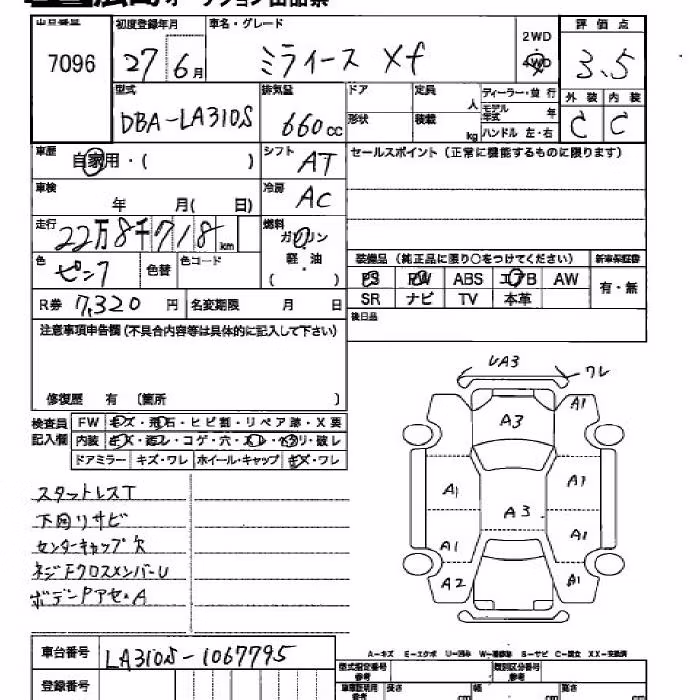 広島オークション出品票
出品番号 初度登録年月 車名・グレード 評価点
7096 27 6月 ミライース Xf 2WD 4WD 3.5
型式 排気量 ドア 定員 人 ディーラー・並行 外装 内装
DBA-LA310S 660cc 形状 積載 kg モデル年式 年 C C
ハンドル 左・右
車歴 自家用・( ) シフト AT セールスポイント(正常に機能するものに限ります)
車検 年 月( 日) 冷房 AC
走行 22万8千718km 燃料 ガソリン
色 ピンク 色替 色コード 軽油 ( )
装備品(純正品に限り○をつけてください) 新車保証書
PS PW ABS エアB AW 有・無
R券 7,320円 名変期限 月 日 SR ナビ TV 本革
注意事項申告欄(不具合内容等は具体的に記入して下さい) 後日品
修復歴 有 〔箇所 〕
検査員記入欄 FW キズ・飛石・ヒビ割・リペア跡・X要
内装 キズ・汚レ・コゲ・穴・スレ・ヘタリ・破レ
ドアミラー キズ・ワレ ホイール・キャップ キズ・ワレ
UA3 ワレ
A1
A3
A1 A1
A3
A1 A1
A2 A1
スタットレスT
下回リサビ
センターキャップ欠
ネジFクロスメンバーU
A-キズ E-エクボ U-凹み W-補修跡 S-サビ C-腐食 XX-交換済
車台番号 LA310S-1067795
登録番号
型式指定番号 類別区分番号
参考 長さ cm 幅 cm 高さ cm